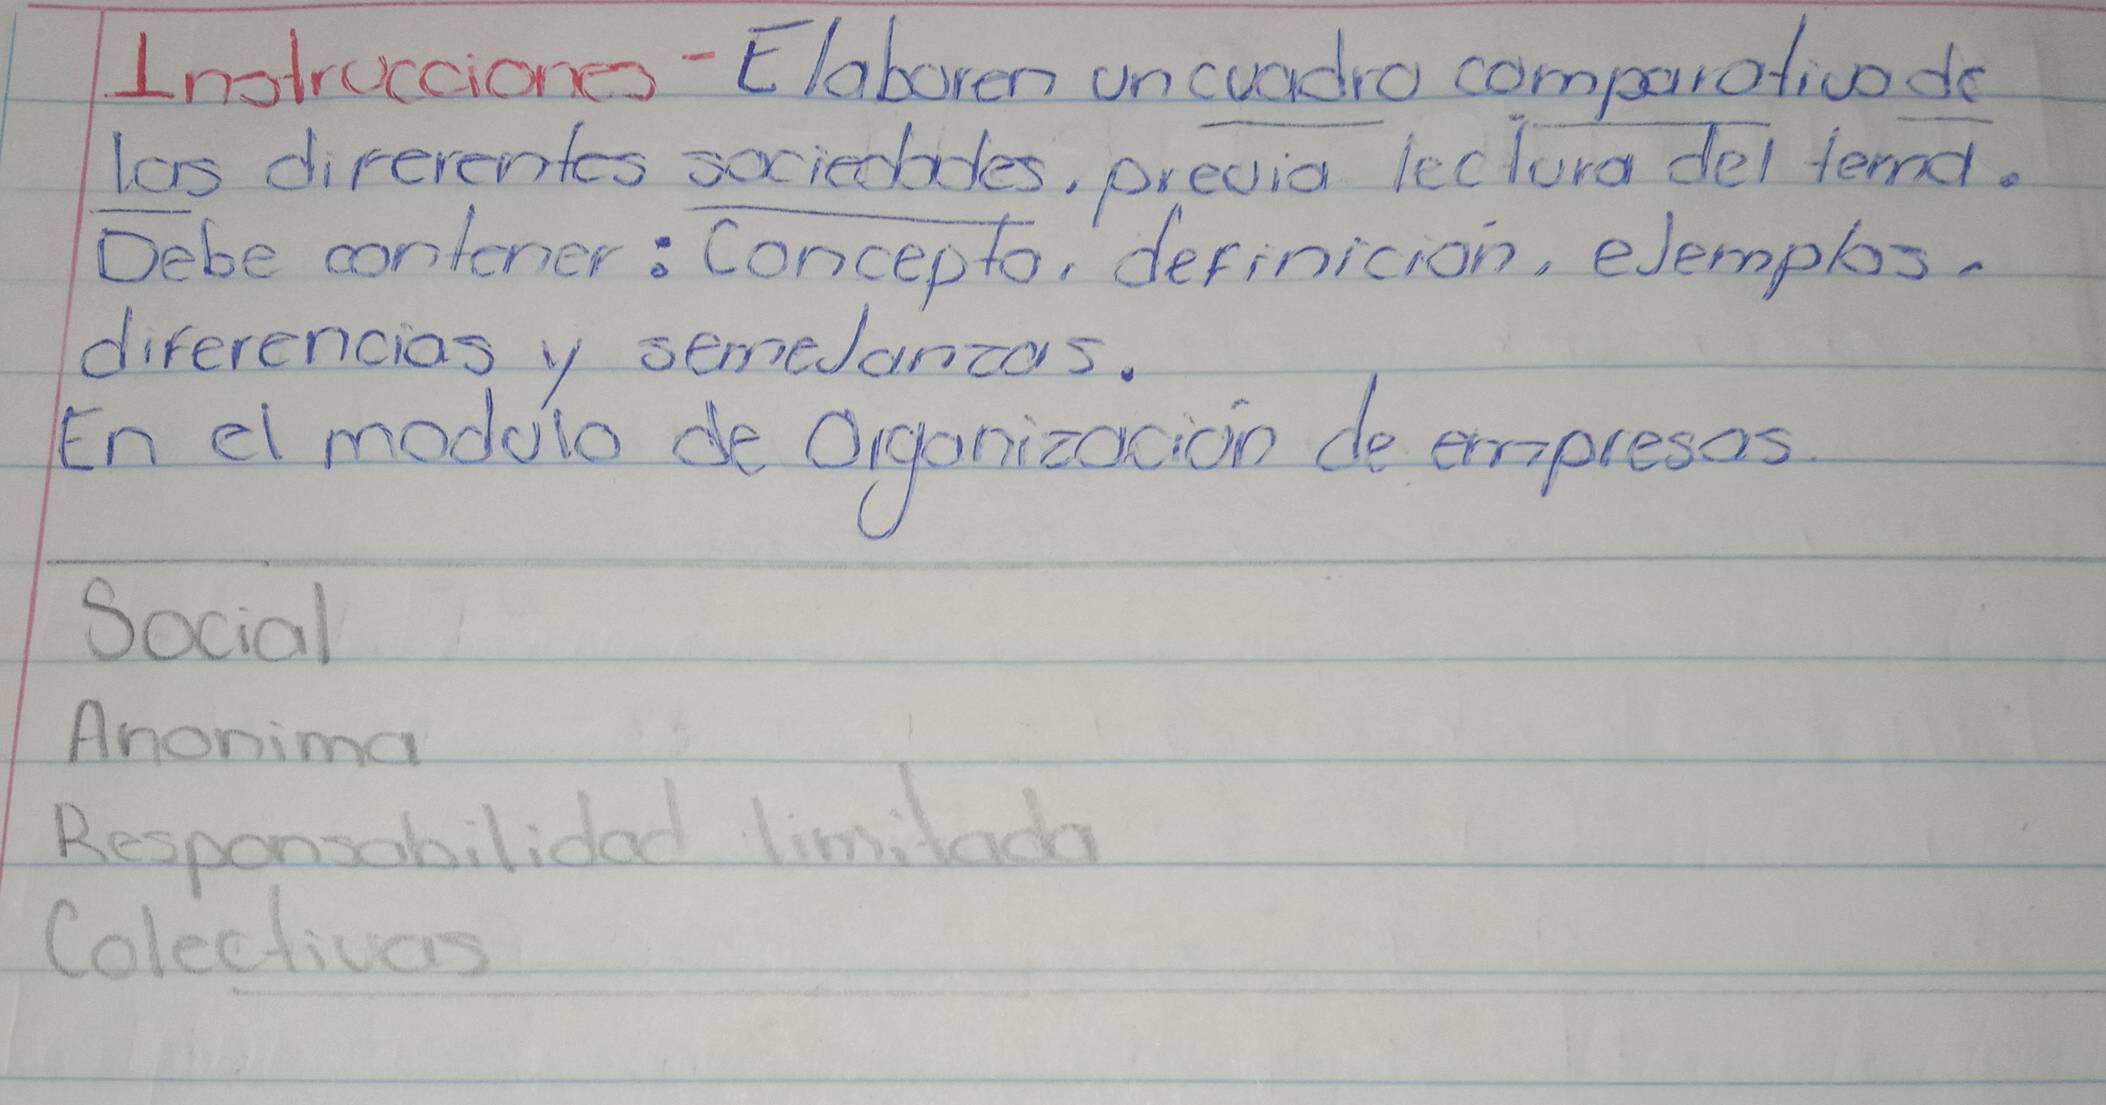 Instrucciones - Elaboren un cuadro comparativo de
las diferentes sociedades, previa lectura del tema.
Debe contener: Concepto, definición, eJemplos,
diferencias y semeJanzas.
En el modulo de Organización de empresas.
Social
Anonima
Responsabilidad limitada
Colectivas